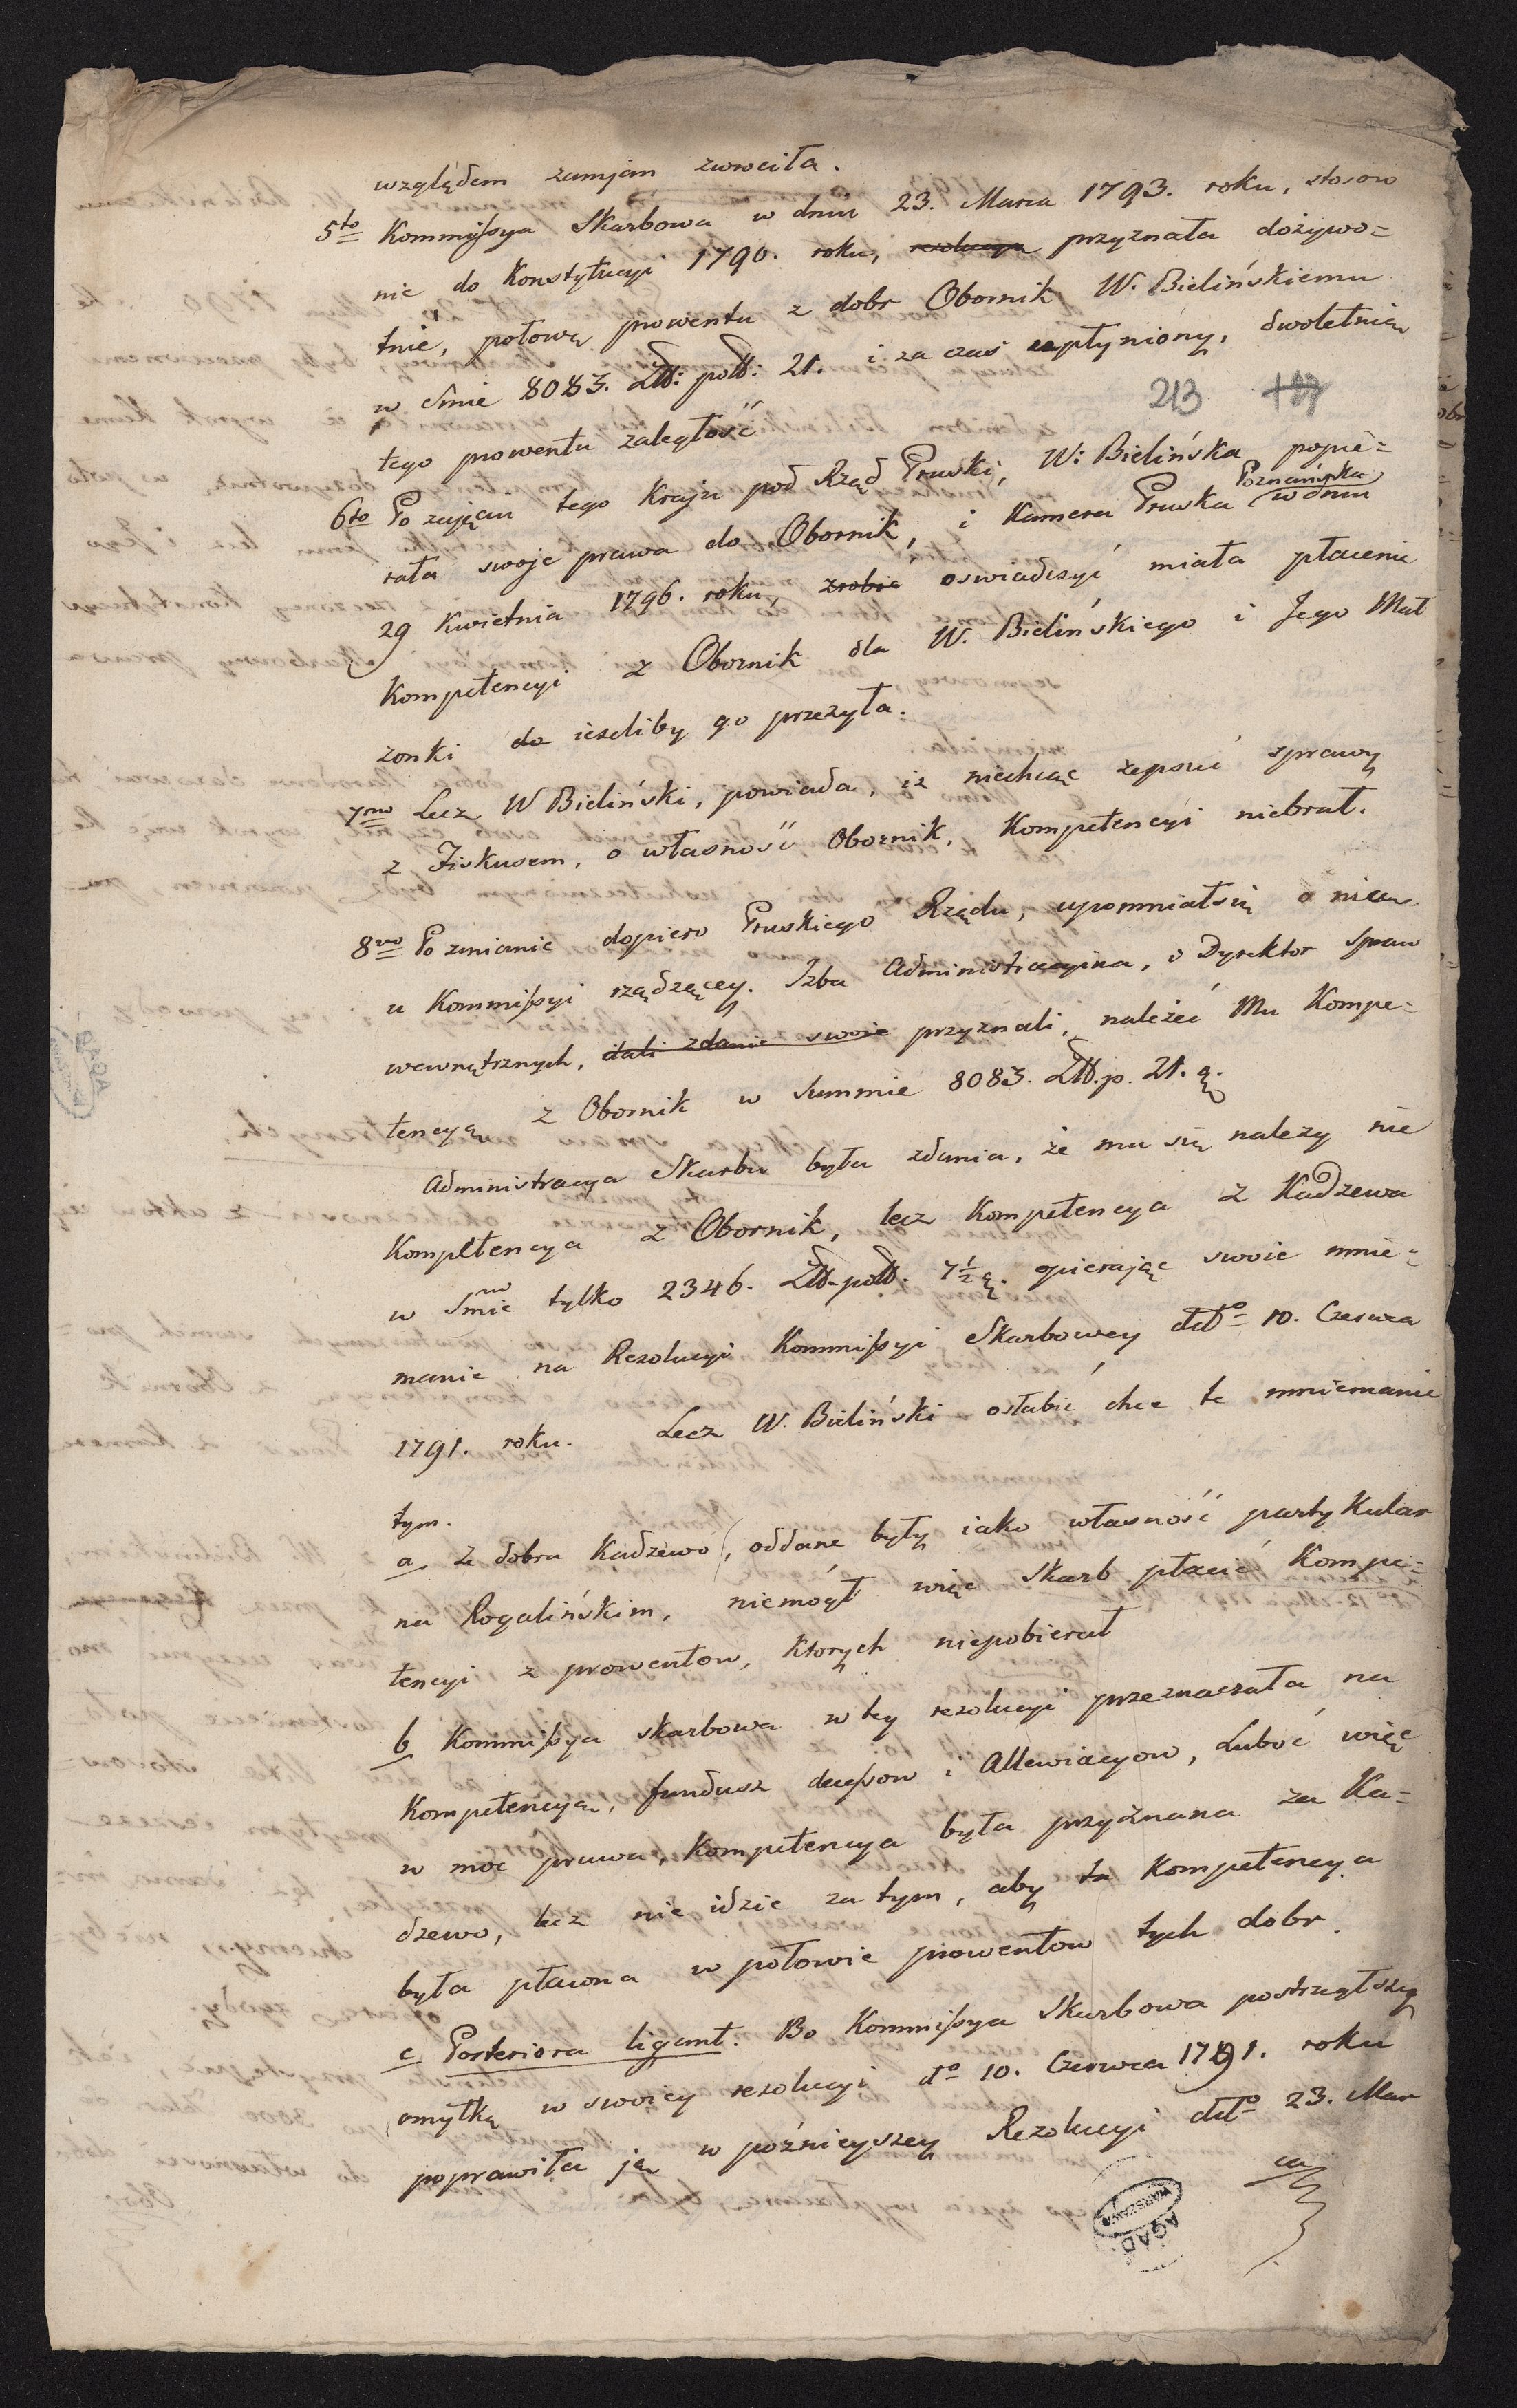 względem zamian zwrociła.
5to Kommissya Skarbowa w dniu 23. Marca 1793. roku, stosow
nie do Konstytucyi 1790. roku, rezolucya przyznała dożywo=
tnie, połowę prowentu z dobr Obornik W. Bielińskiemu
w Smie 8083. Złł: poll: 21. i za czas upłyniony, dwoletnią
tego prowentu zaległość
213
6to Po zajęciu tego Kraju pod Rząd Pruski, W: Bielińska popie=
rała swoje prawa do Obornik, i Kamera Pruska Poznańska w dniu
29 Kwietnia 1796. roku, zrobić oswiadczyć miała płacenie
Kompetencyi z Obornik dla W. Bielińskiego i Jego Mał
zonki do iezeliby go przezyła.
7mo Lecz W Bieliński, powiada, iż niechcąc zepsuć sprawy
z Fiskusem, o własność Obornik, Kompetencyi niebrał.
8vo Po zmianie dopiero Pruskiego Rządu, upomniałsię o nią
u Kommissyi rządzącey. Izba Administracyina, i Dyrektor Spraw
wewnętrznych, dali zdanie swoie przyznali, należeć Mu Kompe=
tencyą z Obornik w Summie 8083. Złł.p. 21. g.
Administracya Skarbu była zdania, że mu się nalezy nie
Kompetencya z Obornik, lecz Kompetencya z Kadzewa
w Smie tylko 2346. Złł. poll. 7½ g. opierając swoie mnie=
manie na Rezolucyi Kommissyi Skarbowey ddto 10. Czerwca
1791. roku. Lecz W. Bieliński osłabić chce te mniemanie
tym.
a, Ze dobra Kadzewo, oddane były iako własność partykular
na Rogalińskim, niemógł więc Skarb płacić Kompe=
tencyi z prowentow, ktorych niepobierał
b Kommissya skarbowa w tey rezolucyi przeznaczała na
Kompetencyą, fundusz decessow i Allewiacyow, Luboć więc
w moc prawa, Kompetencya była przyznana za Ka=
dzewo, lecz nie idzie za tym, aby ta Kompetencya
była płacona w połowie prowentow tych dobr.
c Posteriora ligant. Bo Kommissya Skarbowa postrzegłszy
omyłkę w swoiey rezolucyi do 10. Czerwca 1791. roku
poprawiła ją w poźnieyszey Rezolucyi ddto 23. Mar
ca
AGAD
WARSZAWA